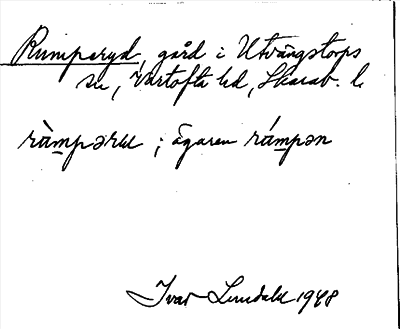 Rumperyd, gård i Utvängstorps
sn, Vartofta hd, Skarab. l.
ràmpəru ; ägaren rámpən
Ivar Lundahl 1948